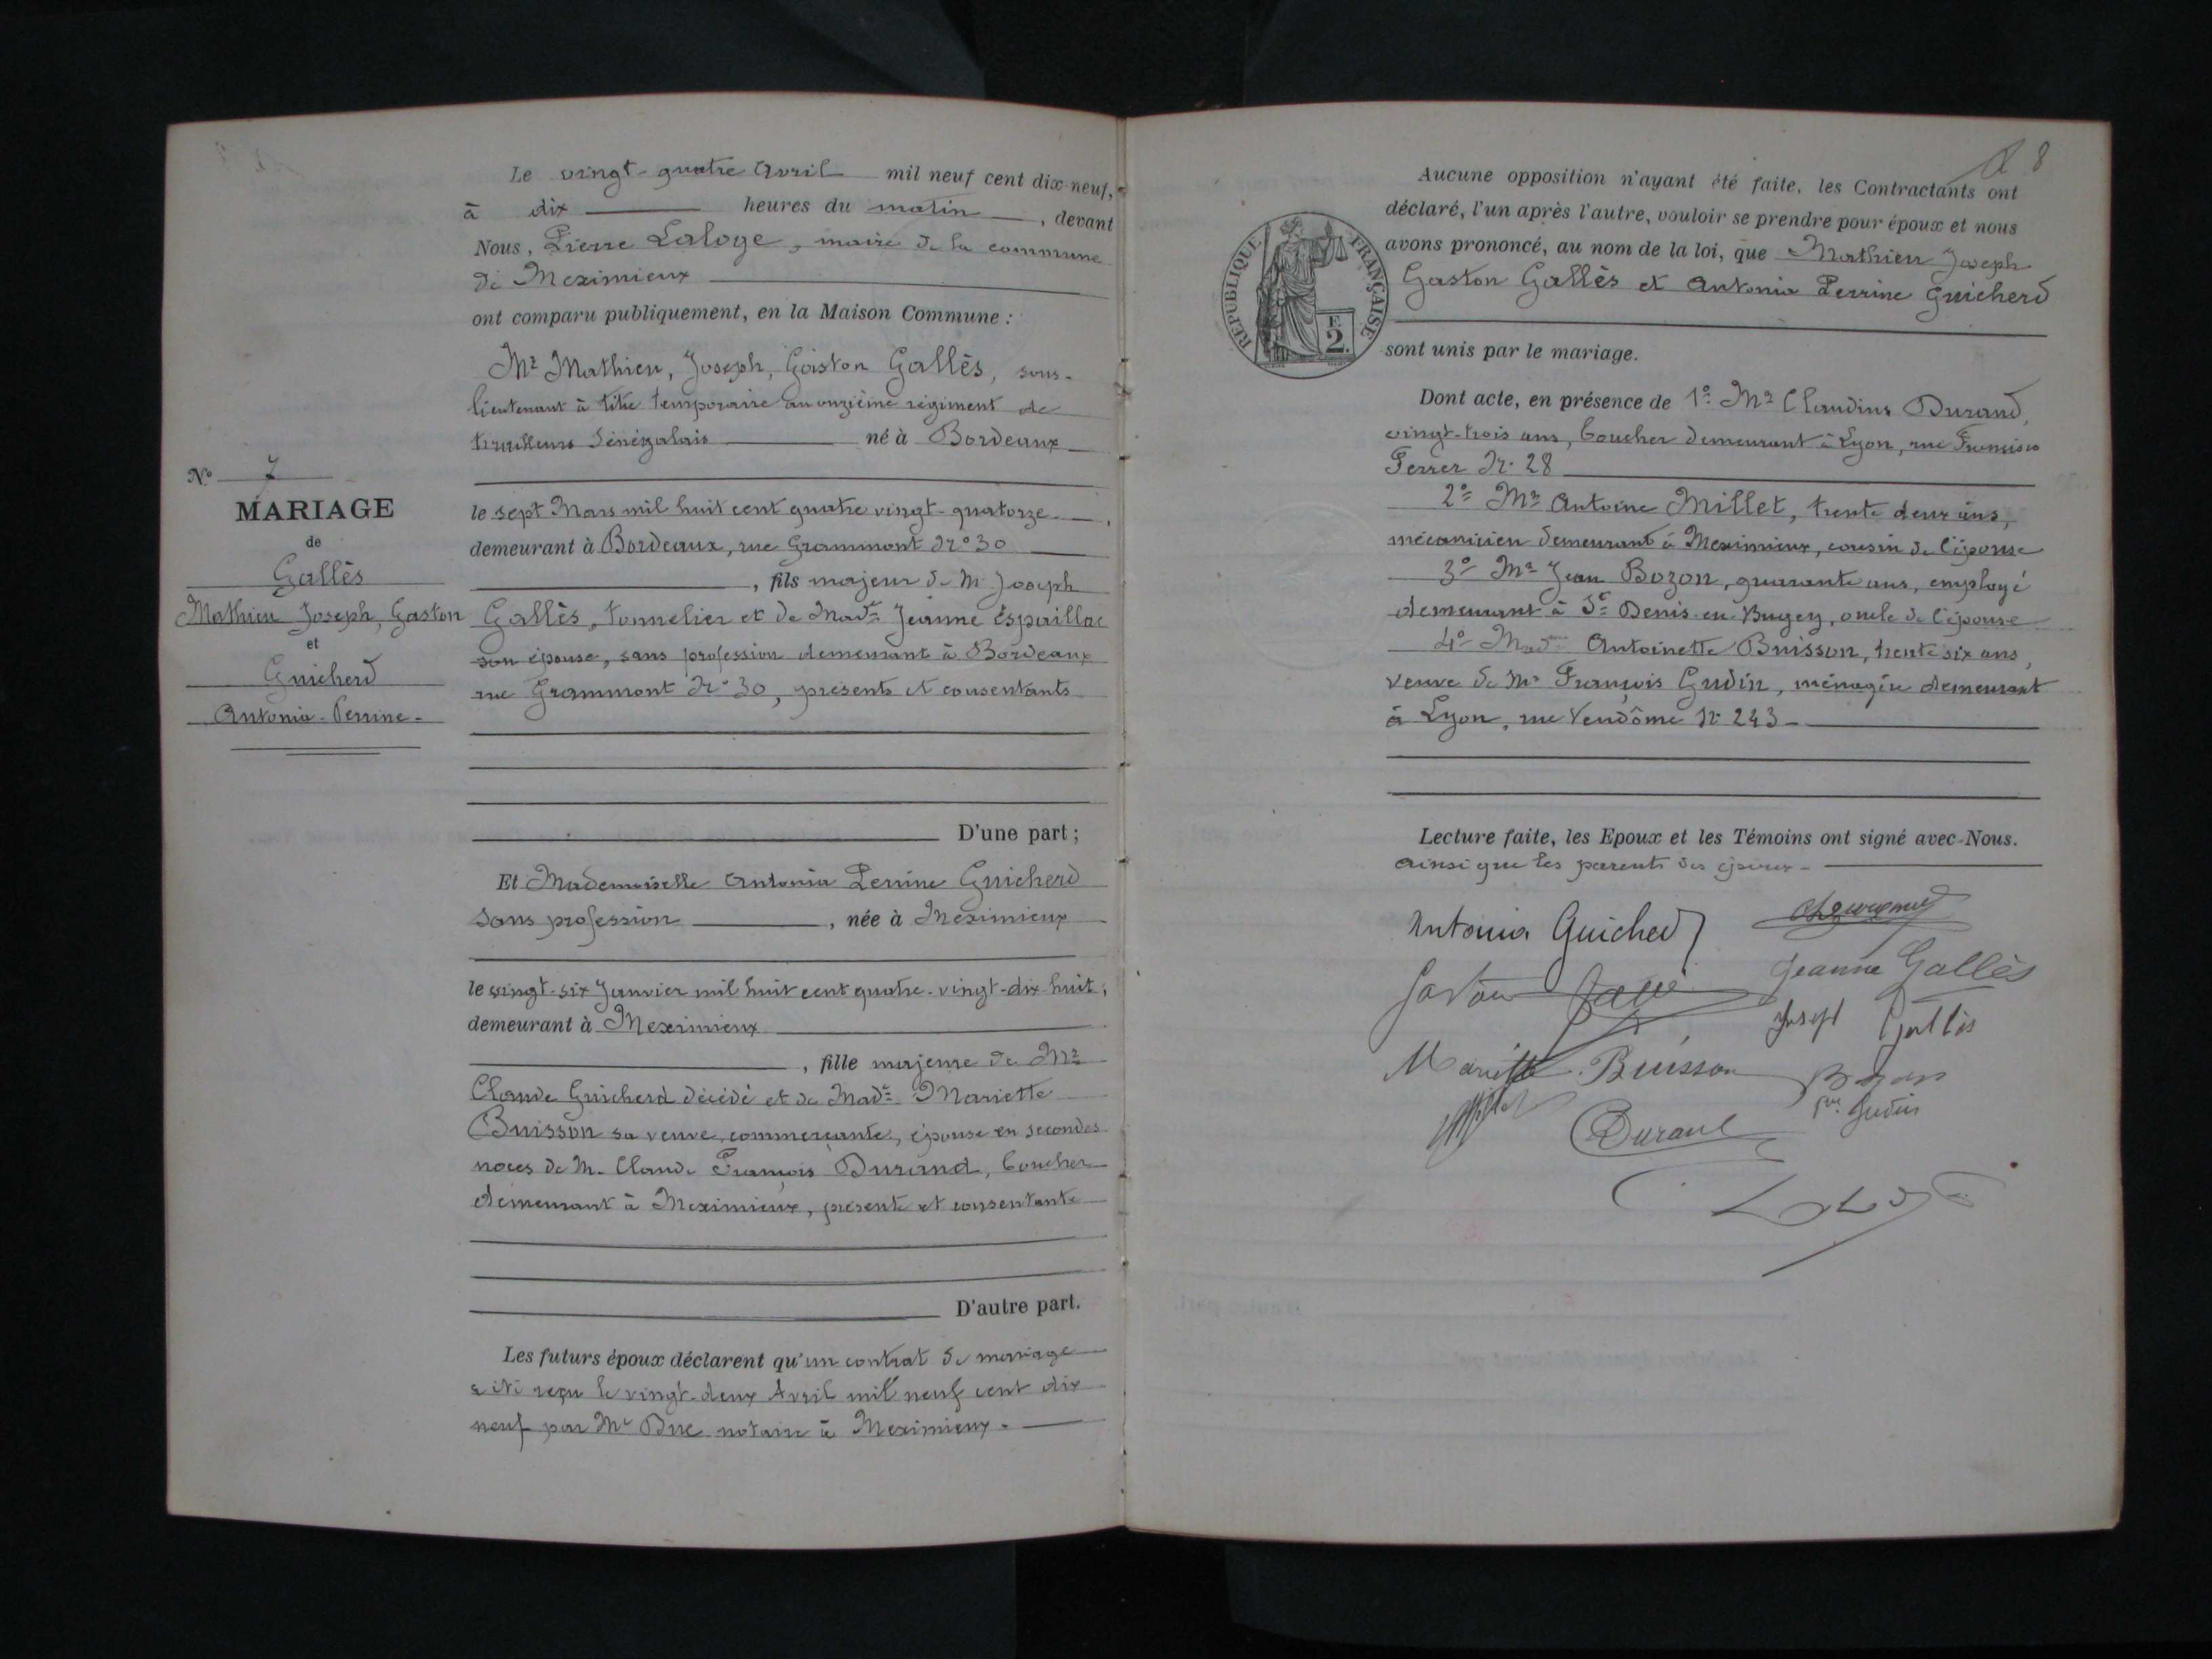 Le vingt-quatre Avril mil neuf cent dix-neuf,
à dix heures du matin, devant
Nous, Pierre Laloge, maire de la commune
de Meximieux
ont comparu publiquement, en la Maison Commune :
Mr Mathieu, Joseph, Gaston Gallès, sous-
lieutenant à titre temporaire au onzième régiment de
tirailleurs Sénégalais né à Bordeaux
le sept Mars mil huit cent quatre vingt-quatorze,
demeurant à Bordeaux, rue Grammont No 30
, fils majeur de M. Joseph
Gallès, tonnelier et de Made Jeanne Espaillac
son épouse, sans profession demeurant à Bordeaux
rue Grammont No 30, présents et consentants
D'une part ;
Et Mademoiselle Antonia Perrine Guicherd
sans profession, née à Meximieux
le vingt-six Janvier mil huit cent quatre-vingt-dix-huit,
demeurant à Meximieux
, fille majeure de Mr
Claude Guicherd décédé et de Made Mariette
Buisson sa veuve, commerçante, épouse en secondes
noces de M. Claude François Durand, boucher
demeurant à Meximieux, présente et consentante
D'autre part.
Les futurs époux déclarent qu'un contrat de mariage
a été reçu le vingt-deux Avril mil neuf cent dix
neuf par Me Duc notaire à Meximieux.
No 7
MARIAGE
de
Gallès
Mathieu Joseph, Gaston
et
Guicherd
Antonia-Perrine-
8
Aucune opposition n'ayant été faite, les Contractants ont
déclaré, l'un après l'autre, vouloir se prendre pour époux et nous
avons prononcé, au nom de la loi, que Mathieu Joseph
Gaston Gallès et Antonia Perrine Guicherd
sont unis par le mariage.
RÉPUBLIQUE FRANÇAISE
F.
2.
Dont acte, en présence de 1o Mr Claudius Durand,
vingt-trois ans, boucher demeurant à Lyon, rue Francisco
Ferrer No 28
2o Mr Antoine Millet, trente deux ans,
mécanicien demeurant à Meximieux, cousin de l'épouse
3o Mr Jean Bozon, quarante ans, employé
demeurant à St Denis-en-Bugey, oncle de l'épouse
4o Made Antoinette Buisson, trente six ans,
veuve de Mr François Gudin, ménagère demeurant
à Lyon, rue Vendôme No 243-
Lecture faite, les Epoux et les Témoins ont signé avec Nous.
ainsi que les parents des époux-
Antonia Guicherd
Jeanne Gallès
Gaston Gallès
Joseph Gallès
Mariette Buisson
Bozon
Millet
Durand
Vve Gudin